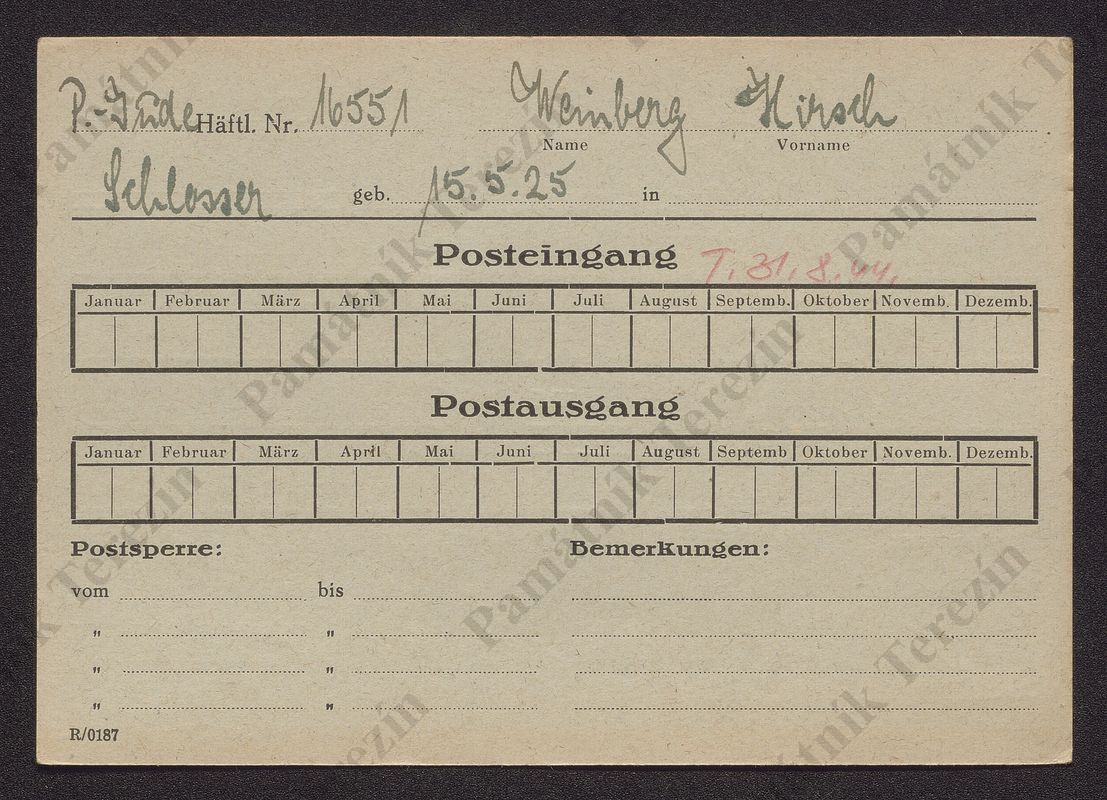 P.-Jude Häftl. Nr. 16551 Weinberg Hirsch
Name Vorname
Schlosser geb. 15.5.25 in
Posteingang T. 31.8.44.
Januar Februar März April Mai Juni Juli August Septemb. Oktober Novemb. Dezemb.
Postausgang
Januar Februar März April Mai Juni Juli August Septemb Oktober Novemb. Dezemb.
Postsperre: Bemerkungen:
vom bis
" "
" "
" "
R/0187
Památník Terezín